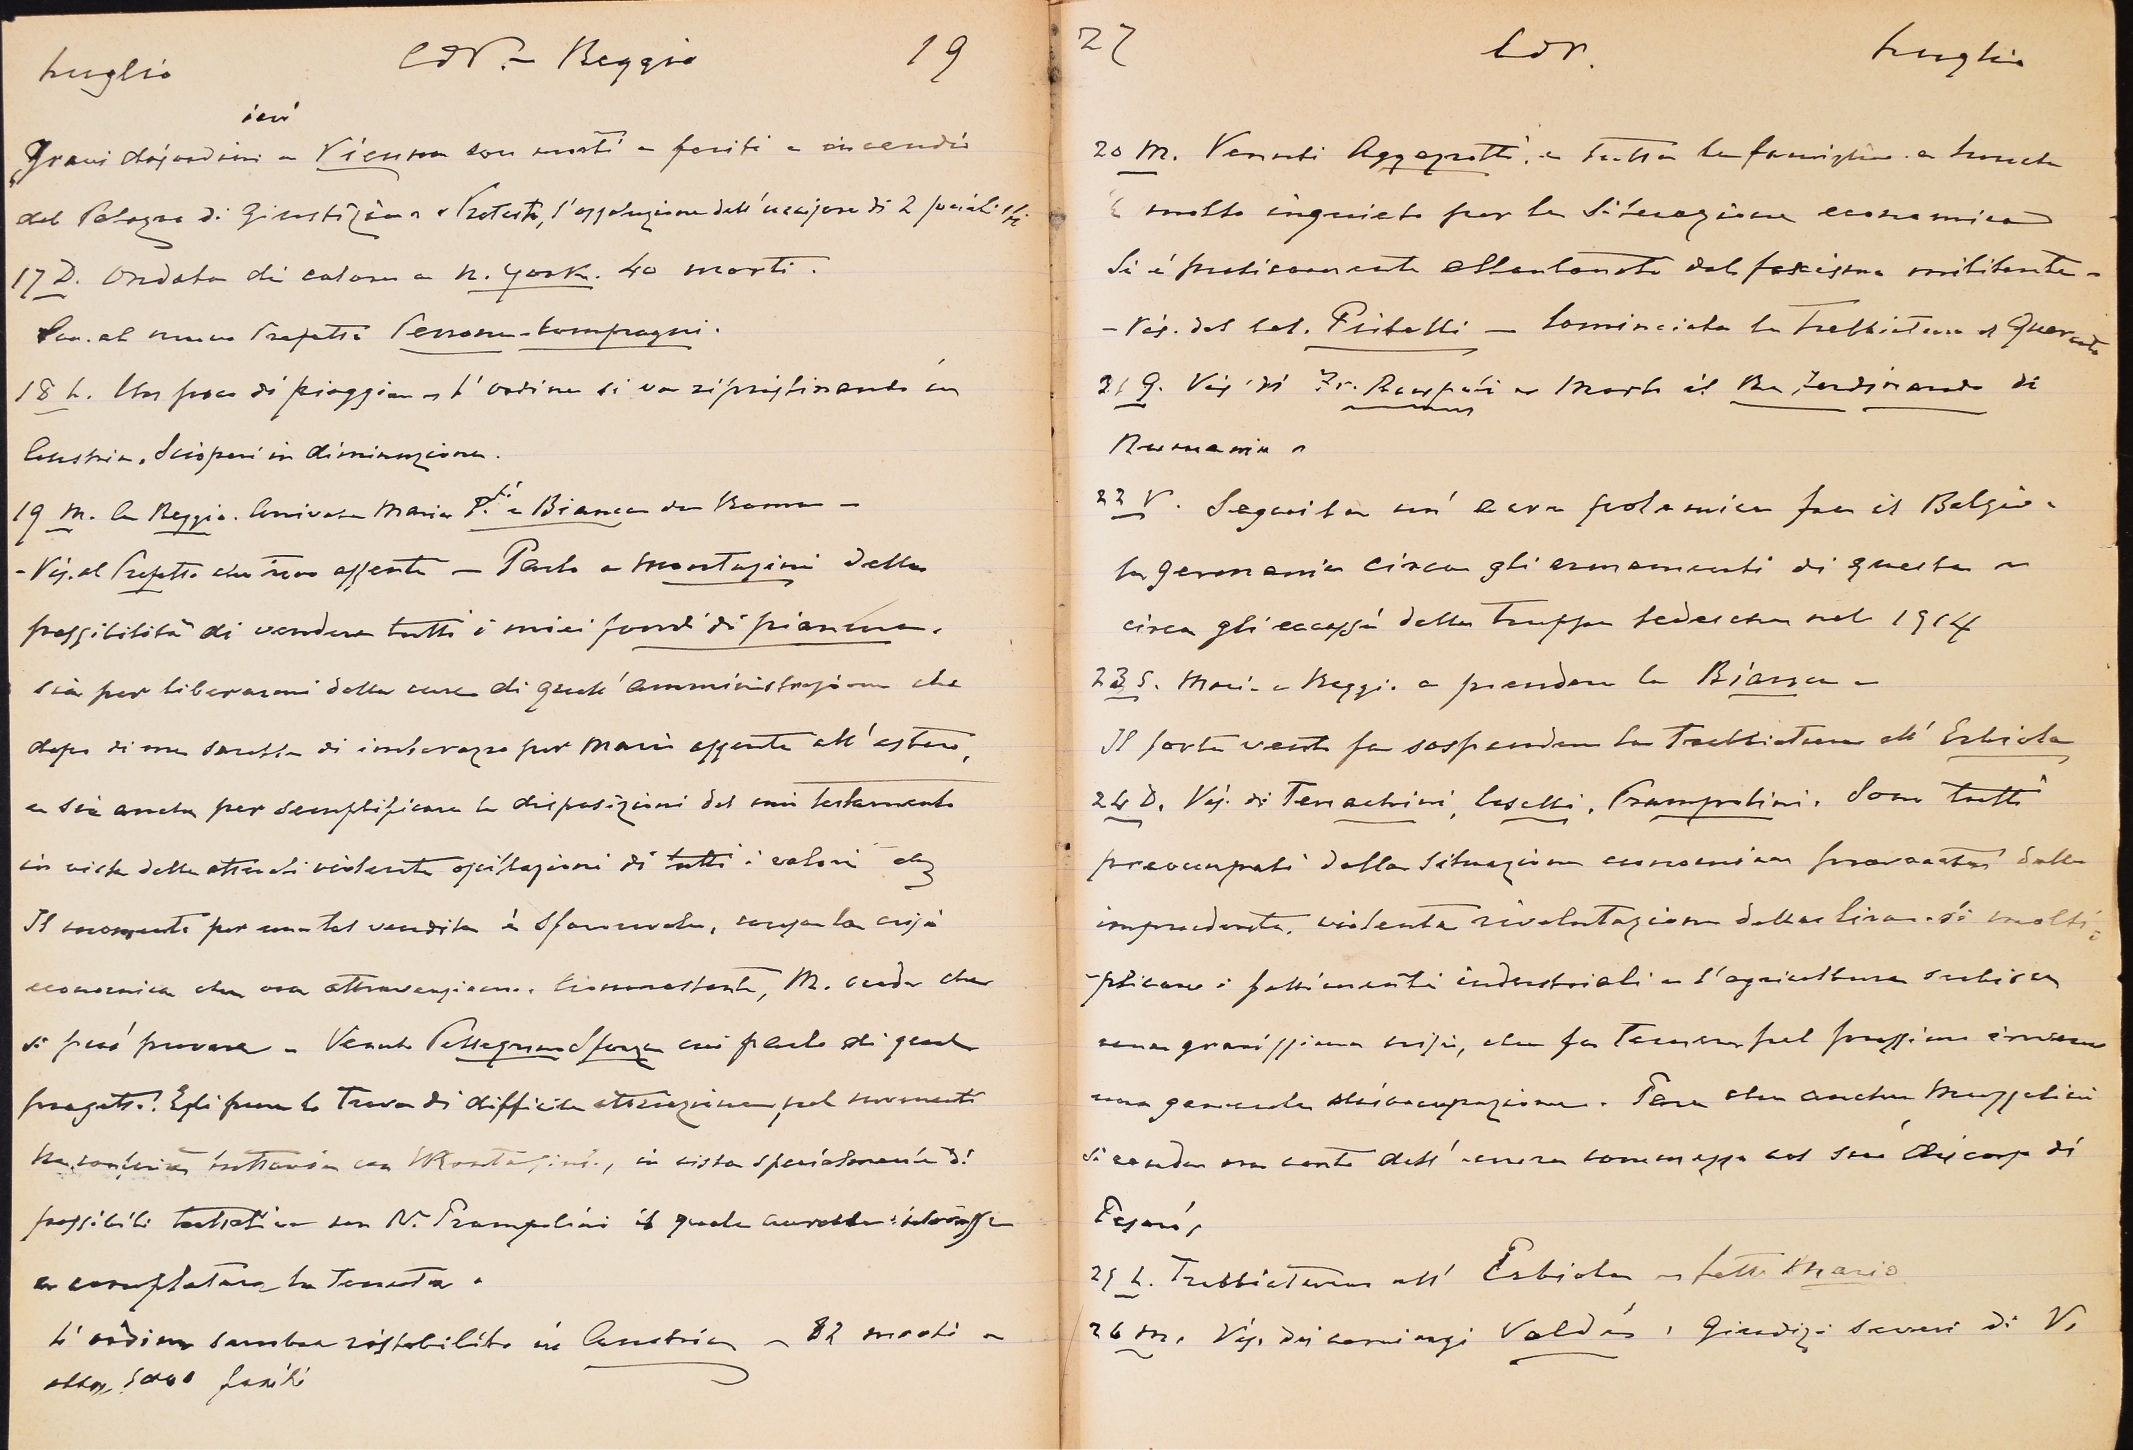 Luglio CdR. - Reggio 19
ieri
Gravi disordini a Vienna con morti e feriti e incendio
del Palazzo di Giustizia - Protesta, l'assoluzione dell'uccisore di 2 socialisti.
17 D. Ondata di calore a N. York. 40 morti.
al nuovo Prefetto Perrone-Compagni.
18 L. Un poco di pioggia - L'ordine si va ripristinando in
Austria. Scioperi in diminuzione.
19 M. A Reggio. Arrivata Maria P. e Bianca da Roma -
- Vis. al Prefetto che era assente - Parlo a Montasini della
possibilità di vendere tutti i miei fondi di pianura,
sia per liberarmi della cura di quell'amministrazione che
dopo di me sarebbe di imbarazzo per Mario assente all'estero,
e sia anche per semplificare le disposizioni del mio testamento
in vista delle attuali violente oscillazioni di tutti i valori
Il momento per una tal vendita è sfavorevole, causa la crisi
economica che ora attraversiamo. Ciononostante, M. crede che
si può provare - Venuto Pellegrino Spaggiari cui parlo di quel
progetto. Egli pure lo trova di difficile attuazione pel momento
Ne tuttavia con Montasini, in vista specialmente di
possibili trattative con N. Prampolini il quale avrebbe interesse
a completare la tenuta.
L'ordine sembra ristabilito in Austria - 82 morti e
oltre 5000 feriti
27 CdR. Luglio
20 M. Venuti Aggazzotti, e tutta la famiglia.
È molto inquieto per la situazione economica
Si è praticamente allontanato dal fascismo militante -
- Vis. del Col. Fritelli - Cominciata la trebbiatura al Querceto
21 G. Vis. di Fr. - Morto il Re Ferdinando di
Rumania -
22 V. Seguita un'acre polemica fra il Belgio e
la Germania circa gli armamenti di questa e
circa gli eccessi delle truppe tedesche nel 1914
23 S. Mario a Reggio a prendere la Bianca -
Il forte vento fa sospendere la trebbiatura all'Esbiola
24 D. Vis. di Terrachini, Caselli, Prampolini. Sono tutti
preoccupati dalla situazione economica provocata dalla
imprudente, violenta rivalutazione della lira - si molti-
-plicano i fallimenti industriali e l'agricoltura subisce
una gravissima crisi, che fa temere pel prossimo inverno
una generale disoccupazione. Pare che anche Mussolini
si renda ora conto dell'errore commesso col suo discorso di
Pesaro,
25 L. Trebbiatura all'Esbiola
26 M. Vis. dei coniugi Valdés, Giudizi severi di V.